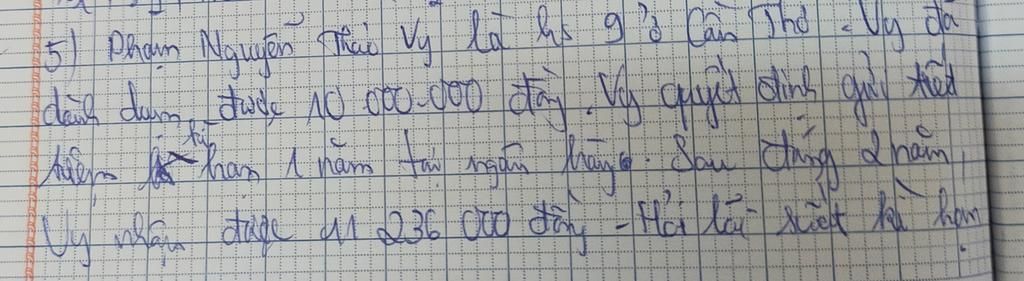 5) Phạm Nguyễn Thái Vy là hs 9 ở Cần Thơ. Vy đã
dành dụm được 10 000.000 đồng. Vy quyết định gửi tiết
kiệm kì hạn 1 năm tại ngân hàng. Sau đúng 2 năm,
Vy nhận được 11 236 000 đồng - Hỏi lãi suất kì hạn